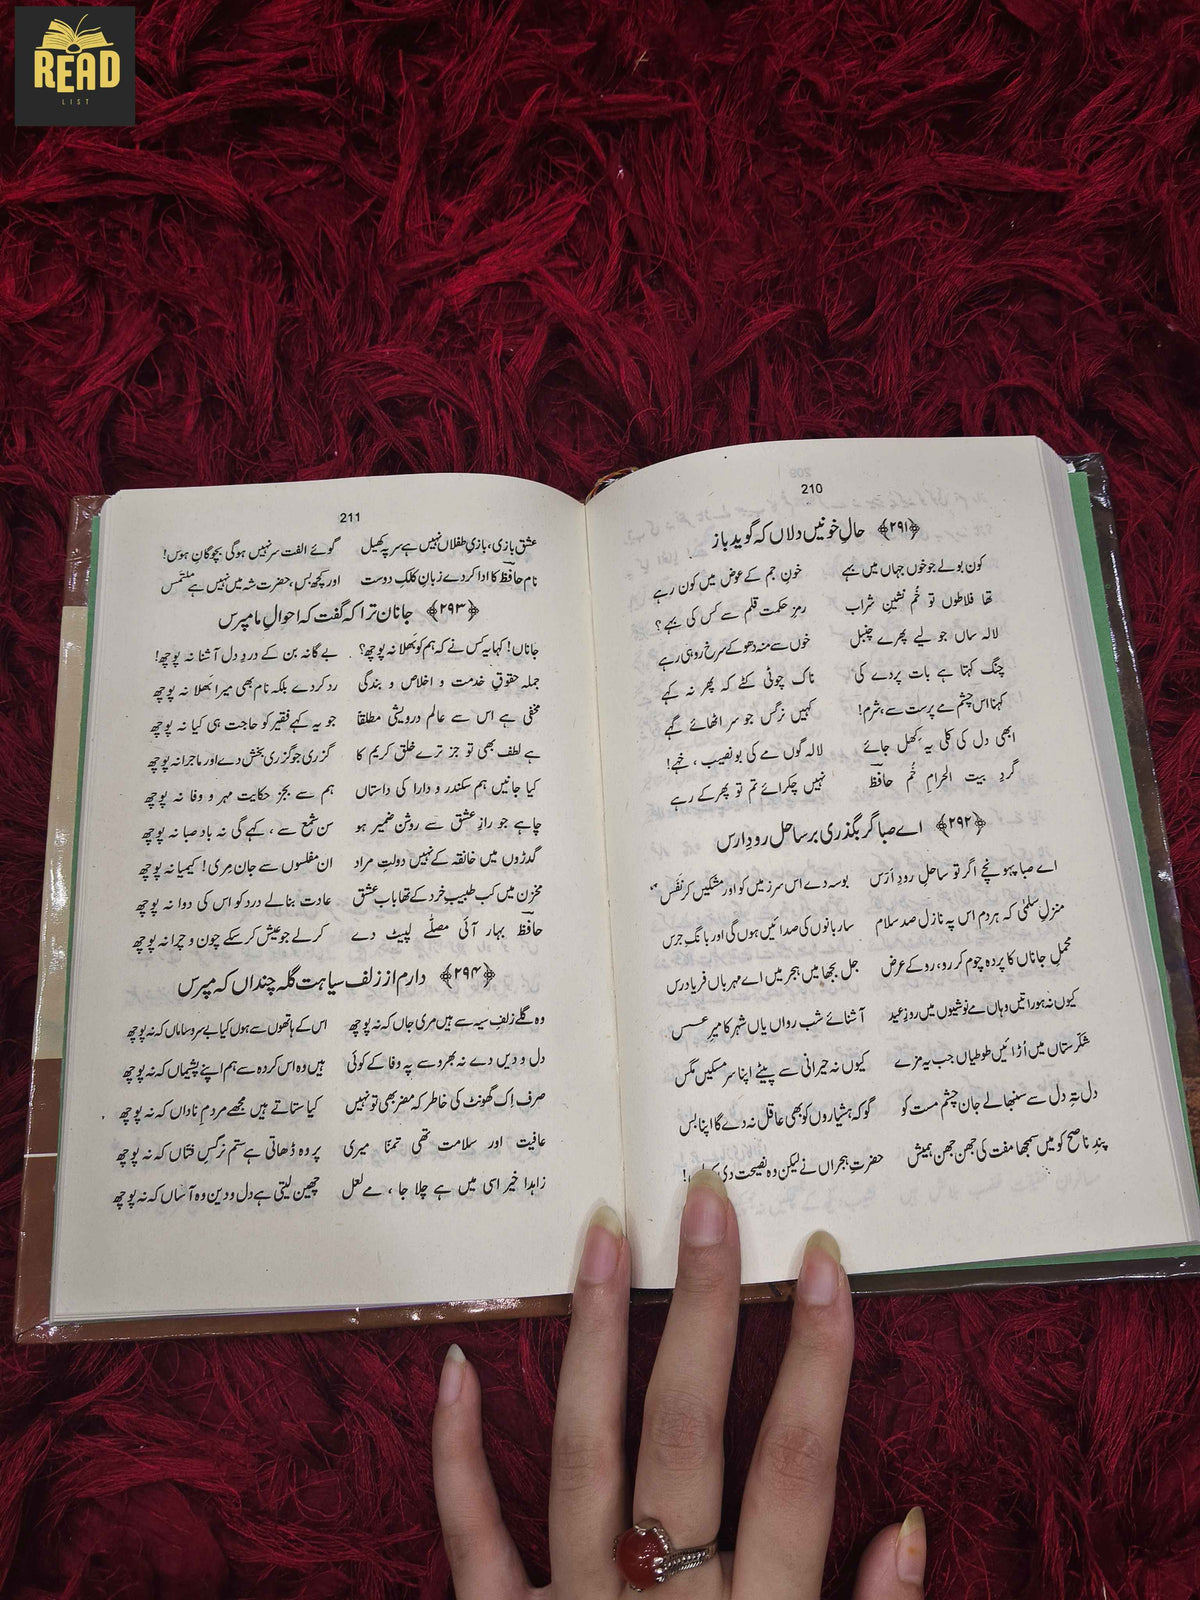 READ
LIST
210
﴿۲۹۱﴾ حالِ خونیں دلاں کہ گوید باز
کون بولے جو خوں جہاں میں بہے خونِ جم کے عوض میں کون رہے
تھا فلاطوں تو خُم نشینِ شراب رمزِ حکمت قلم سے کس کی بہے؟
لالہ ساں جو لیے پھرے چنبل خوں سے منہ دھو کے سرخ روہی رہے
چنگ کہتا ہے بات پردے کی ناک چوٹی کٹے کہ پھر نہ کہے
کہنا اس چشمِ مے پرست سے، شرم! کہیں نرگس جو سر اٹھائے گہے
ابھی دل کی کلی یہ کِھل جائے لالہ گوں مے کی بو نصیب، خہے!
گردِ بیت الحرامِ خُم حافظؔ نہیں چکرائے تم تو پھر کے رہے
﴿۲۹۲﴾ اے صبا گر بگذری بر ساحلِ رودِ ارس
اے صبا پہونچے اگر تو ساحلِ رودِ اَرَس بوسہ دے اس سرزمیں کو اور مشکیں کر نفَس
منزلِ سلمیٰ کہ ہر دم اس پہ نازل صد سلام ساربانوں کی صدائیں ہوں گی اور بانگِ جرس
محملِ جاناں کا پردہ چوم کر رو، رو کے عرض جل بجھا میں ہجر میں اے مہرباں فریاد رس
کیوں نہ ہو راتیں وہاں مے نوشیوں میں روزِ عید آشنائے شب رواں یاں شہر کا میرِ عسس
شکّرستاں میں اُڑائیں طوطیاں جب یہ مزے کیوں نہ حیرانی سے پیٹے اپنا سر مسکیں مگس
دل بتہِ دل سے سنبھالے جان چشمِ مست کو گو کہ ہشیاروں کو بھی عاقل نہ دے گا اپنا بس
پندِ ناصح کو میں سمجھا مفت کی جھن جھن ہمیش حضرتِ ہجراں نے لیکن وہ نصیحت دی
211
عشق بازی، بازیِ طفلاں نہیں ہے سر پہ کھیل گوئے الفت سر نہیں ہوگی بچوگانِ ہوس!
نام حافظؔ کا ادا کر دے زبانِ کلکِ دوست اور کچھ بس، حضرتِ شہ میں نہیں ہے ملتمس
﴿۲۹۳﴾ جانان ترا کہ گفت کہ احوالِ ما مپرس
جاناں! کہا یہ کس نے کہ ہم کو بھلا نہ پوچھ؟ بے گانہ بن کے دردِ دل آشنا نہ پوچھ!
جملہ حقوقِ خدمت و اخلاص و بندگی رد کر دے بلکہ نام بھی میرا بَھلا نہ پوچھ
مخفی ہے اس سے عالمِ درویشی مطلقاً جو یہ کہے فقیر کو حاجت ہی کیا نہ پوچھ
ہے لطف بھی تو جز ترے خلقِ کریم کا گزری جو گزری بخش دے اور ماجرا نہ پوچھ
کیا جانیں ہم سکندر و دارا کی داستاں ہم سے بجز حکایتِ مہر و وفا نہ پوچھ
چاہے جو رازِ عشق سے روشن ضمیر ہو سن شمع سے، کہے گی نہ بادِ صبا نہ پوچھ
گدڑوں میں خانقہ کے نہیں دولتِ مراد ان مفلسوں سے جان مِری! کیمیا نہ پوچھ
مخزن میں کب طبیبِ خرد کے تھا بابِ عشق عادت بنا لے درد کو اس کی دوا نہ پوچھ
حافظؔ بہار آئی مصلّٰے لپیٹ دے کر لے جو عیش کر سکے چون و چرا نہ پوچھ
﴿۲۹۴﴾ دارم از زلفِ سیاہت گلہ چنداں کہ مپرس
وہ گلے زلفِ سیہ سے ہیں مری جاں کہ نہ پوچھ اس کے ہاتھوں سے ہوں کیا بے سروساماں کہ نہ پوچھ
دل و دیں دے نہ بھروسے پہ وفا کے کوئی ہیں وہ اس کردہ سے ہم اپنے پشیماں کہ نہ پوچھ
صرف اِک گھونٹ کی خاطر کہ مضر بھی تو نہیں کیا ستاتے ہیں مجھے مردمِ ناداں کہ نہ پوچھ
عافیت اور سلامت تھی تمنّا میری پر وہ ڈھاتی ہے ستم نرگسِ فتّاں کہ نہ پوچھ
زاہدا خیر اسی میں ہے چلا جا، مے لعل چھین لیتی ہے دل و دین وہ آساں کہ نہ پوچھ